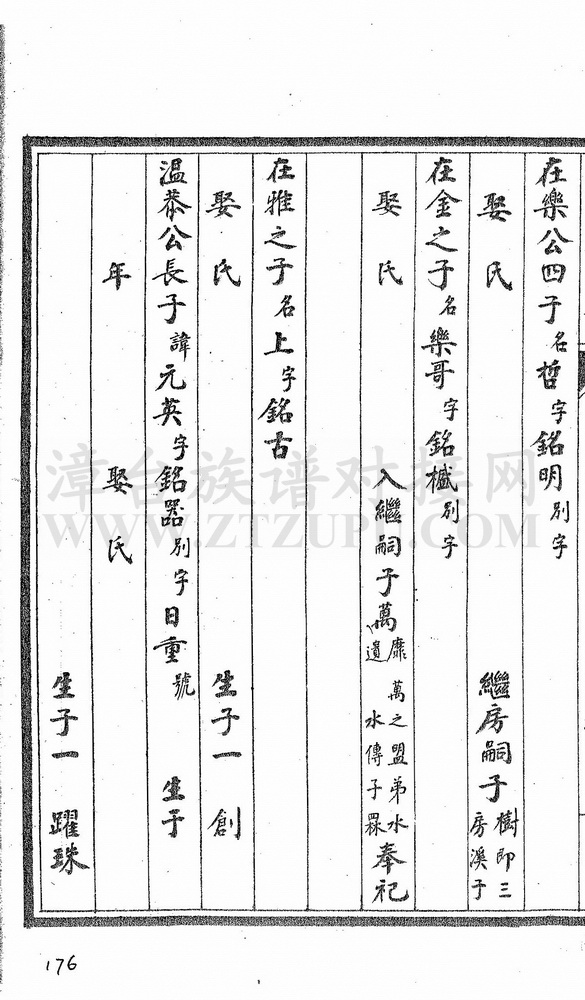 在樂公四子名哲字銘明別字
娶氏 繼房嗣子樹即三房溪子
在金之子名樂哥字銘槭別字
娶氏 入繼嗣子萬靡遺 萬之盟弟水水傳子槑奉祀
在雅之子名上字銘古
娶氏 生子一 創
温恭公長子諱元英字銘器別字日重號 生于
年 娶氏
生子一 躍珠
176
漳台族谱对接网
WWW.ZTZUPU.COM